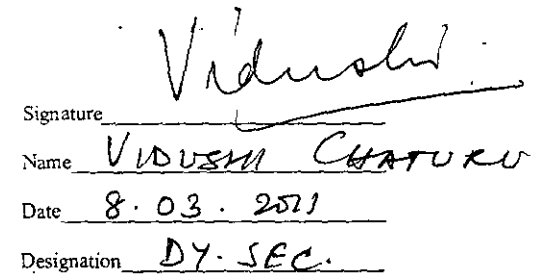 Vidushi
Signature
Name VIDUSHI CHATURV
Date 8.03.2011
Designation DY. SEC.